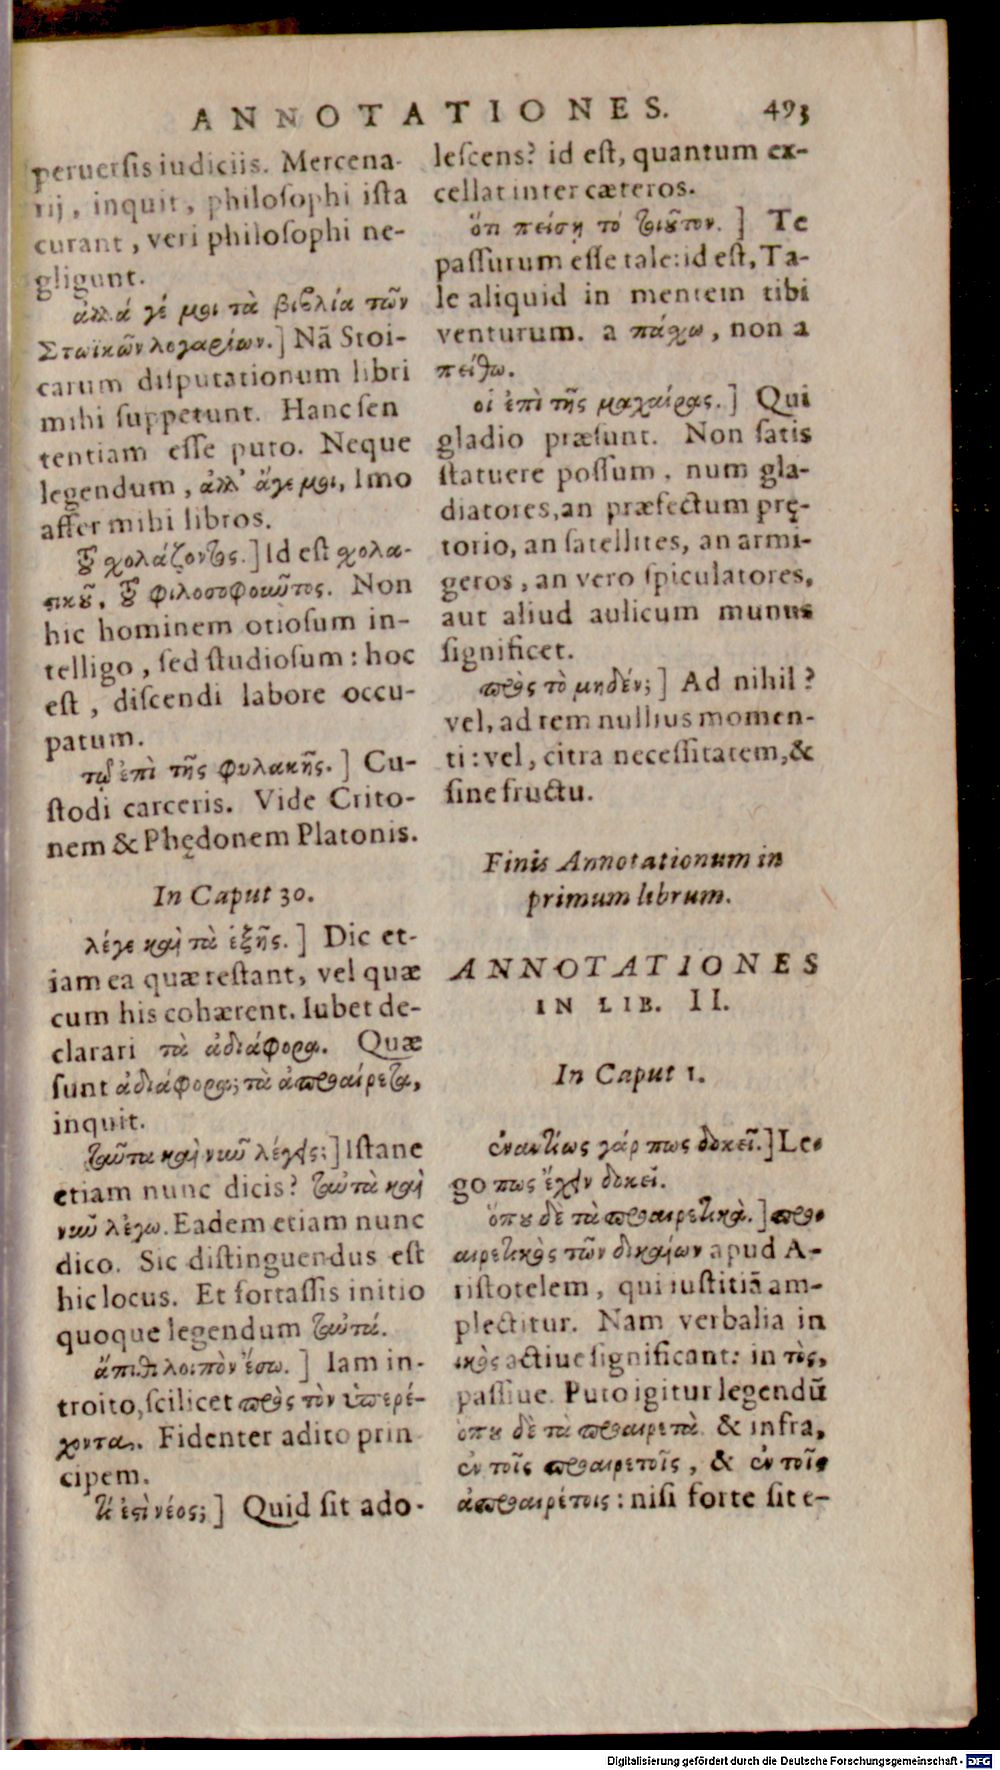 ANNOTATIONES. 493
peruersis iudiciis. Mercena-
rij, inquit, philosophi ista
curant, veri philosophi ne-
gligunt.
ἀλλά γέ μοι τὰ βιβλία τῶν
Στωϊκῶν λογαρίων.] Nā Stoi-
carum disputationum libri
mihi suppetunt. Hanc sen
tentiam esse puto. Neque
legendum, ἀλλ' ἄγε μοι, Imo
affer mihi libros.
τοῦ σχολάζοντος.] Id est σχολα-
στικοῦ, τοῦ φιλοσοφοῦντος. Non
hic hominem otiosum in-
telligo, sed studiosum: hoc
est, discendi labore occu-
patum.
τῷ ἐπὶ τῆς φυλακῆς.] Cu-
stodi carceris. Vide Crito-
nem & Phędonem Platonis.
In Caput 30.
λέγε καὶ τὰ ἑξῆς.] Dic et-
iam ea quæ restant, vel quæ
cum his cohærent. Iubet de-
clarari τὰ ἀδιάφορα. Quæ
sunt ἀδιάφορα; τὰ ἀπροαίρετα,
inquit.
ταῦτα καὶ νῦν λέγεις;] Istane
etiam nunc dicis? ταὐτὰ καὶ
νῦν λέγω. Eadem etiam nunc
dico. Sic distinguendus est
hic locus. Et fortassis initio
quoque legendum ταὐτά.
ἄπιθι λοιπὸν ἔσω.] Iam in-
troito, scilicet πρὸς τὸν ὑπερέ-
χοντα. Fidenter adito prin
cipem.
τί ἐστὶ νέος;] Quid sit ado-
lescens? id est, quantum ex-
cellat inter cæteros.
ὅτι πείσῃ τὸ τοιοῦτον.] Te
passurum esse tale: id est, Ta-
le aliquid in mentem tibi
venturum. a πάχω, non a
πείθω.
οἱ ἐπὶ τῆς μαχαίρας.] Qui
gladio præsunt. Non satis
statuere possum, num gla-
diatores, an præfectum prę-
torio, an satellites, an armi-
geros, an vero spiculatores,
aut aliud aulicum munus
significet.
πρὸς τὸ μηδέν;] Ad nihil?
vel, ad rem nullius momen-
ti: vel, citra necessitatem, &
sine fructu.
Finis Annotationum in
primum librum.
ANNOTATIONES
IN LIB. II.
In Caput 1.
ἐναντίως γάρ πως δοκεῖ.] Le-
go πως ἔχειν δοκεῖ.
ὅπου δὲ τὰ προαιρετικὰ.] προ-
αιρετικὸς τῶν δικαίων apud A-
ristotelem, qui iustitiā am-
plectitur. Nam verbalia in
ικὸς actiue significant: in τὸς,
passiue. Puto igitur legendū
ὅπου δὲ τὰ προαιρετὰ. & infra,
ἐν τοῖς προαιρετοῖς, & ἐν τοῖς
ἀπροαιρέτοις: nisi forte sit e-
Digitalisierung gefördert durch die Deutsche Forschungsgemeinschaft - DFG